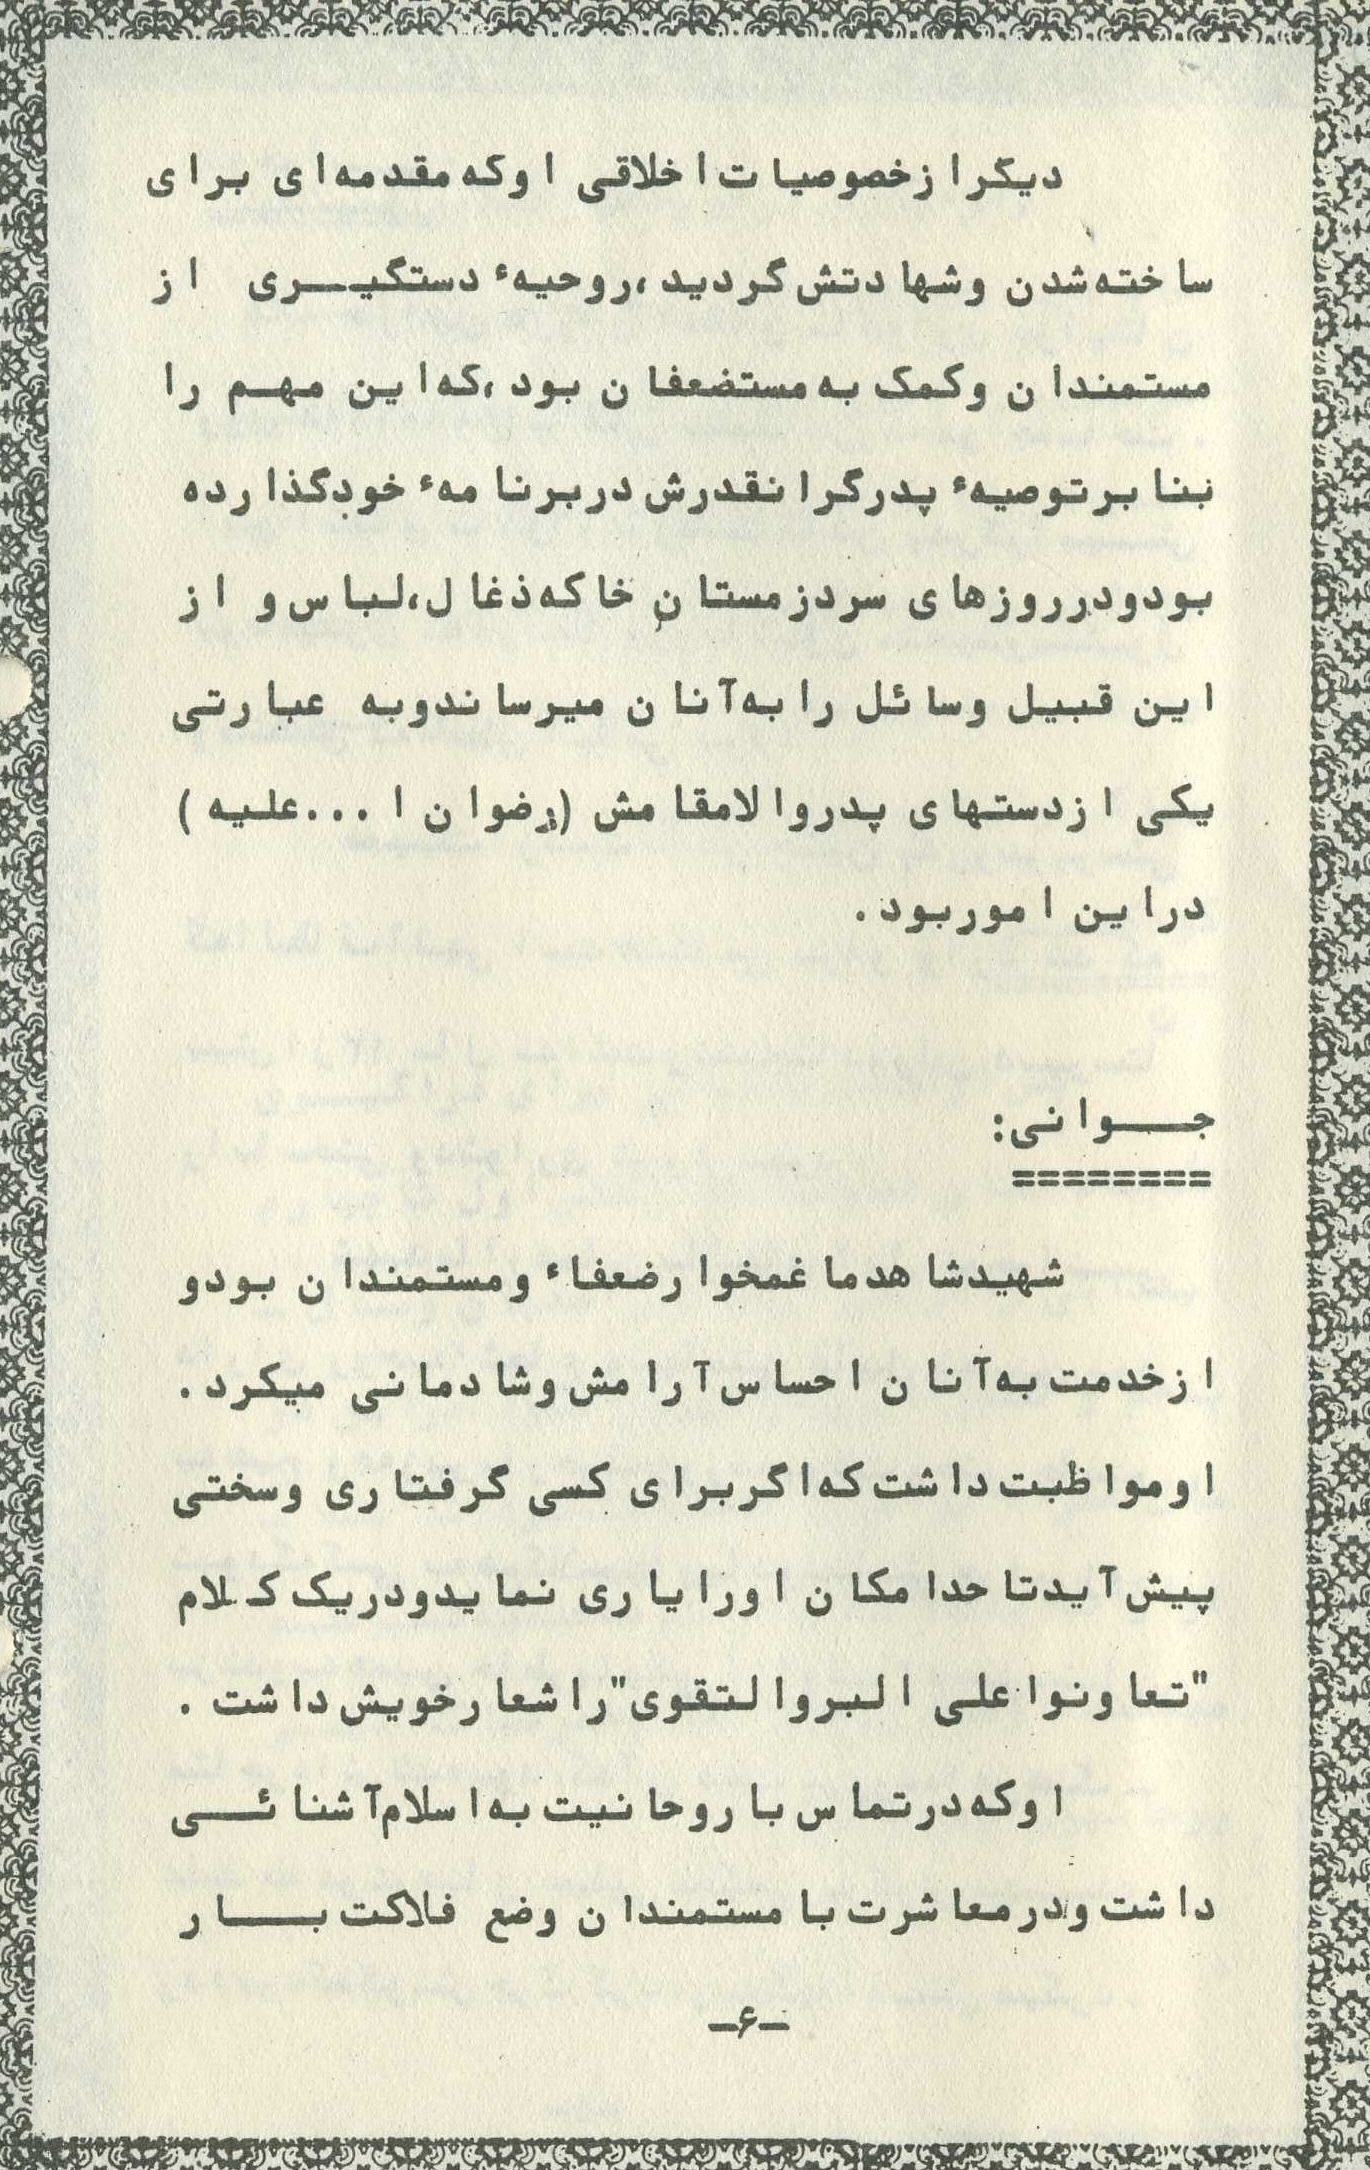 دیگر از خصوصیات اخلاقی او که مقدمه‌ای برای
ساخته شدن و شهادتش گردید، روحیهٔ دستگیری از
مستمندان و کمک به مستضعفان بود، که این مهم را
بنا بر توصیهٔ پدر گرانقدرش در برنامهٔ خود گذارده
بود و در روزهای سرد زمستان خاکه ذغال، لباس و از
این قبیل وسائل را به آنان میرساند و به عبارتی
یکی از دستهای پدر والامقامش (رضوان ا...علیه)
در این امور بود.
جوانی:
========
شهید شاهد ما غمخوار ضعفاء و مستمندان بود و
از خدمت به آنان احساس آرامش و شادمانی میکرد.
او مواظبت داشت که اگر برای کسی گرفتاری و سختی
پیش آید تا حد امکان او را یاری نماید و در یک کلام
"تعاونوا علی البر والتقوی" را شعار خویش داشت.
او که در تماس با روحانیت به اسلام آشنائی
داشت و در معاشرت با مستمندان وضع فلاکت بار
-۶-